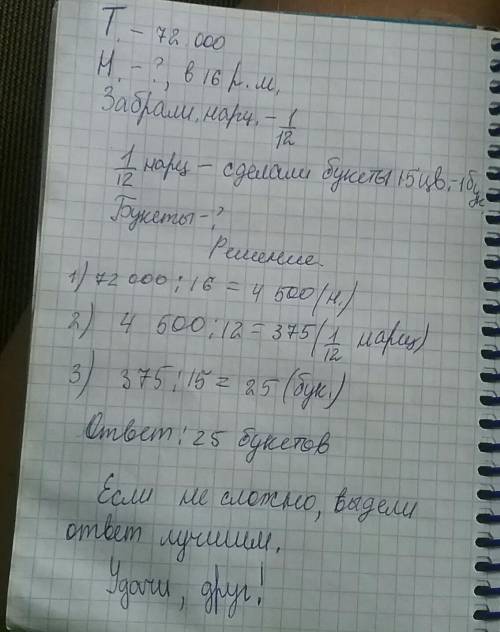 Т. – 72 000
Н. – ?, в 16 р. м.
Забрали нарц. – 1/12
1/12 нарц – сделали букеты 15 цв. – 1 бук
Букеты – ?
Решение
1) 72 000 : 16 = 4 500 (н.)
2) 4 500 : 12 = 375 (1/12 нарц)
3) 375 : 15 = 25 (бук.)
Ответ: 25 букетов
Если не сложно, выдели
ответ лучшим.
Удачи, друг!